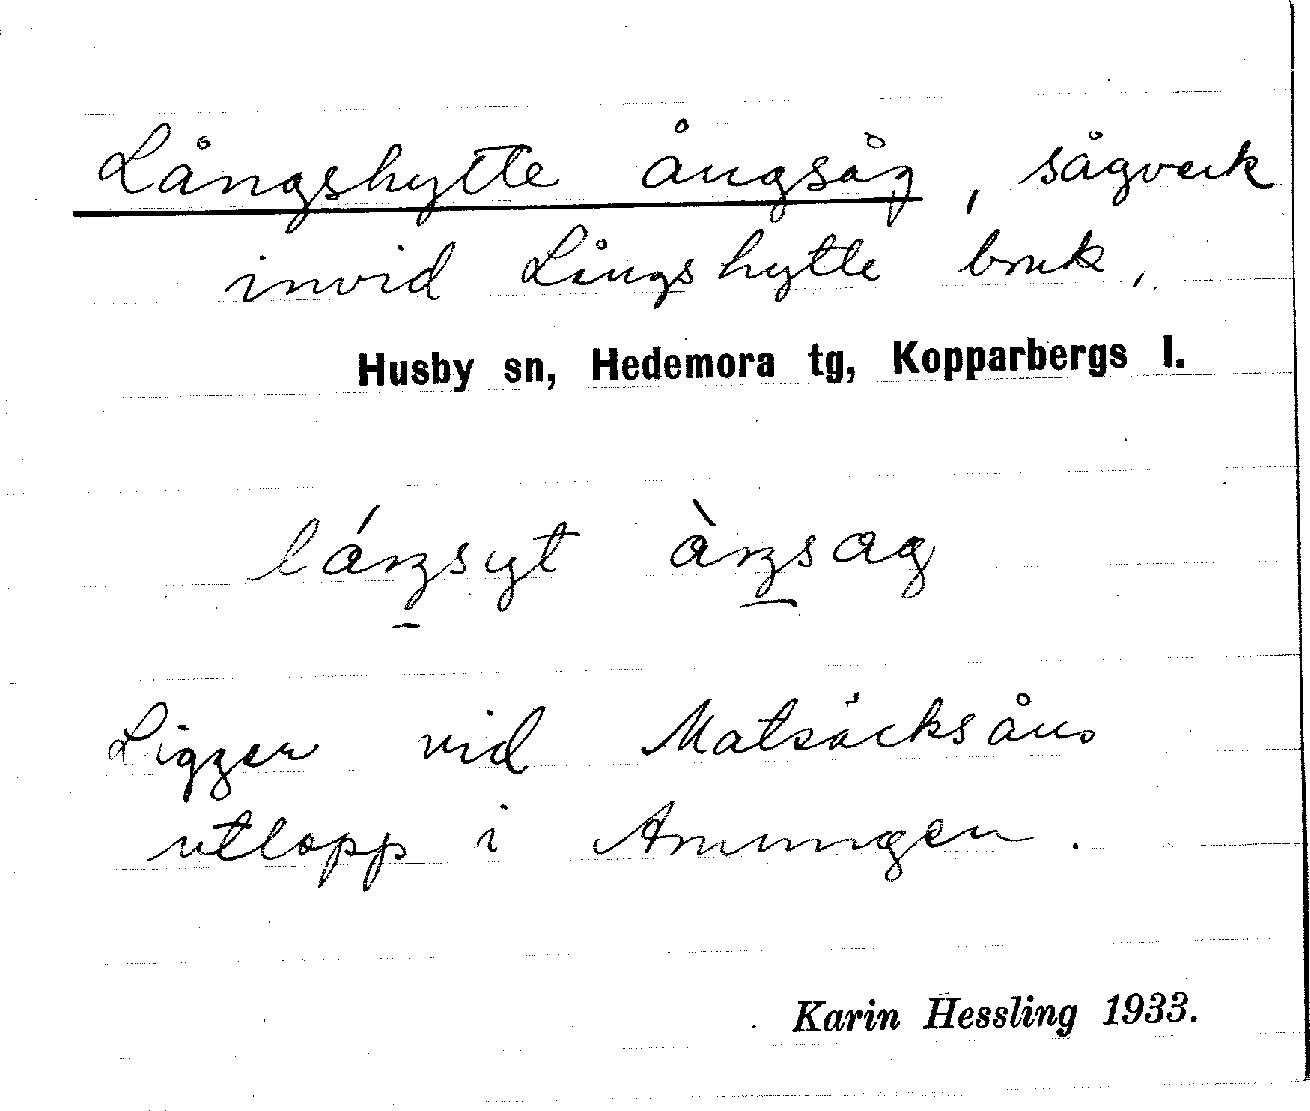 Långshytte ångsåg, sågverk
invid Långshytte bruk,
Husby sn, Hedemora tg, Kopparbergs l.
Ligger vid Matsäcksåns
utlopp i Amungen.
Karin Hessling 1933.